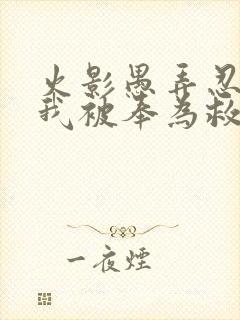 火影愚弄忍
我被奉為救
一夜煙